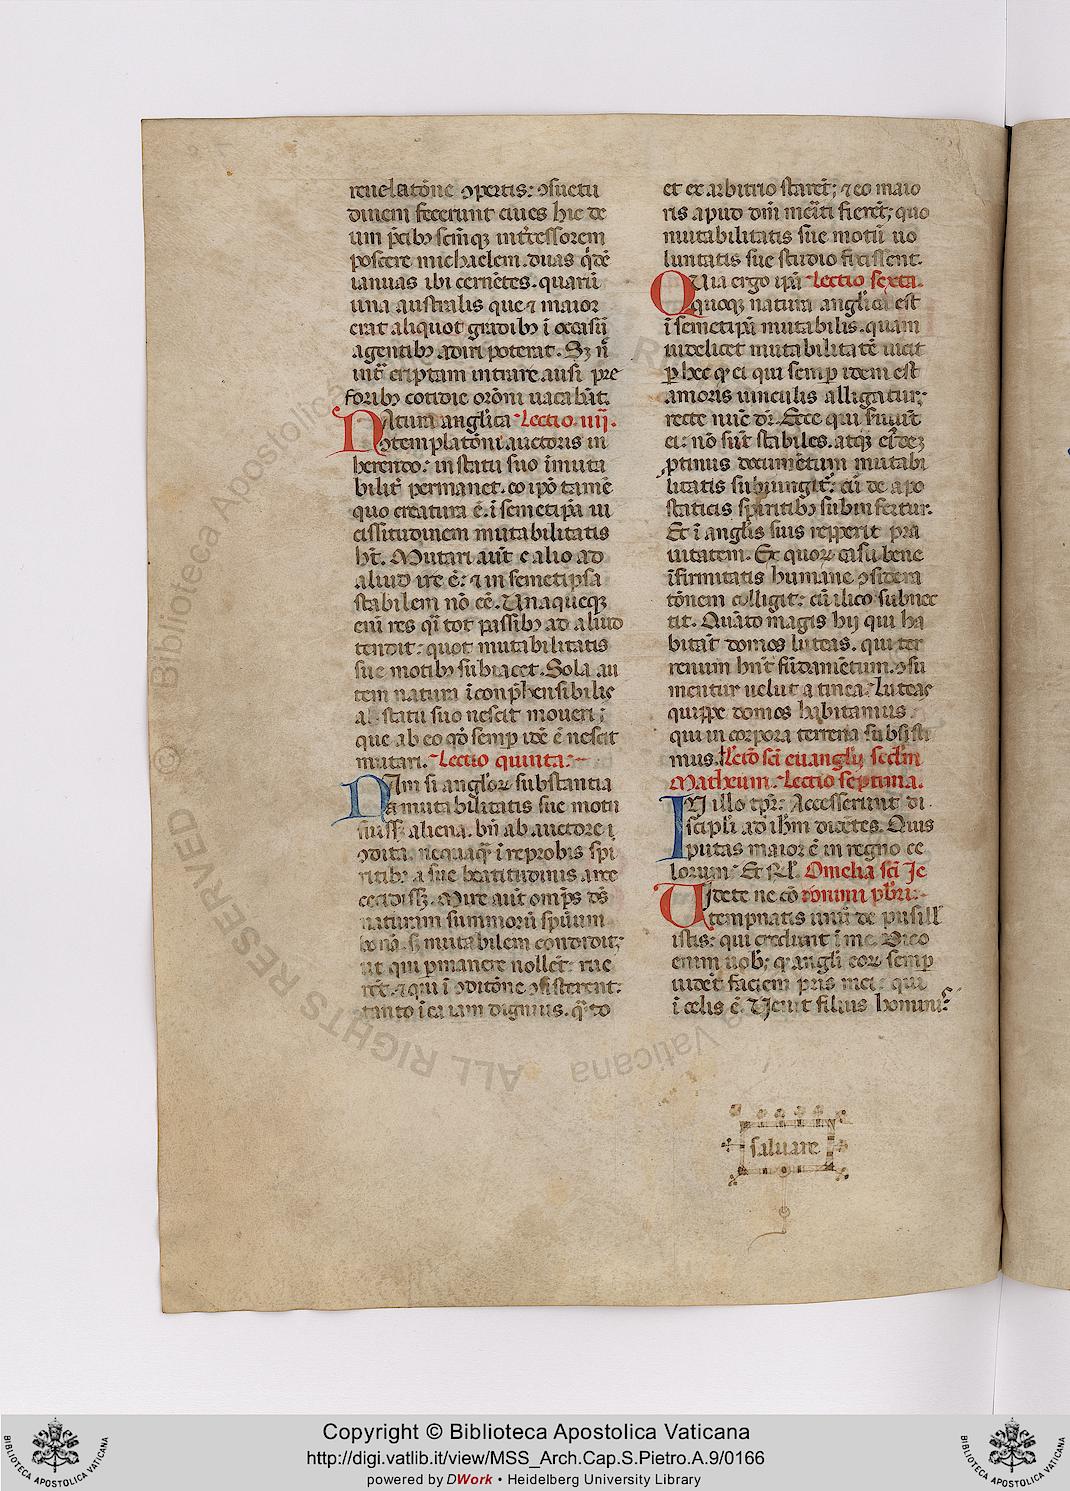 reuelatōne ꝯpertis: ꝯsuetu
dinem fecerunt ciues hic de
um p̄cibꝰ sc̄mqꝫ int̄cessorem
poscere michaelem. duas q̇dē
ianuas ibi cernētes. quarū
una australis que ⁊ maior
erat aliquot gradibꝰ ī occasū
agentibꝰ adiri poterat. Sꝫ n̄
ult̄ criptam intrare ausi pre
foribꝰ cotidie orōni uacabāt.
NAtura anglica Lectio .iiij.
ꝯtemplatōni auctoris in
herendo: in statu suo īmuta
bilit̄ permanet. eo ip̄o tamē
quo creatura ē. ī semetip̄a ui
cissitudinem mutabilitatis
hт̄. Mutari aūt ex alio ad
aliud ire ē: ⁊ in semetipsa
stabilem nō eē. Unaqueqꝫ
enī res q̄i tot passibꝰ ad aliud
tendit: quot mutabilitatis
sue motibꝰ subiacet. Sola au
tem natura īconp̄hensibilis
a statu suo nescit moueri;
que ab eo qd̄ semꝑ idē ē nescit
mutari. Lectio quinta.
NAm si anglorꝫ substantia
a mutabilitatis sue motu
fuissꝫ aliena. bn̄ ab auctore
ꝯdita. nequaq̄ ī reprobis spi
ritibꝰ a sue beatitudinis arce
cecidissꝫ. Mire aūt omp̄s dꝰs
naturam summorū spūum
bonā. sꝫ mutabilem condidit;
ut qui ꝑmanere nollet̄. rue
rēt. ⁊ qui ī ꝯditōne ꝯsisterent:
tanto ī ea iam dignius. q̄to
et ex arbitrio staret̄; ⁊ eo maio
ris apud dm̄ mēiti fieret̄; quo
mutabilitatis sue motū uo
luntatis sue studio fixissent.
QUia ergo ip̄a Lectio sexta.
quoqꝫ natura anglica est
ī semetip̄a mutabilis. quam
uidelicet mutabilitatē uicit
ꝑ hec qꝫ ei qui semꝑ idem est
amoris uinculis alligatur;
recte nūc dr̄. Ecce qui s̄uiūt
ei: nō sūt stabiles. atqꝫ
ꝓtinus documētum mutabi
litatis subiungit̄: cū de apo
staticis spiritibꝰ subinfertur.
Et ī anglis suis repperit pra
uitatem. Ex quorꝫ casu bene
īfirmitatis humane ꝯsidera
tōnem colligit: cū ilico subnec
tit. Quāto magis hij qui ha
bitāt domos luteas. qui ter
renum hn̄t fūdamētum. ꝯsu
mentur uelut a tinea. Luteas
quippe domos habitamus
qui in corpora terrena subsisti
mus. Lcō sc̄i euanglij scdm̄
Matheum. Lectio septima.
IN illo tp̄r: Accesserunt di
scipl̄i ad ih̄m dicētes. Quis
putas maior ē in regno ce
lorum. Et rl̄. Omelia sc̄i Je
UIdete ne cō ronimi pb̄ri.
tempnatis unū de pusill̄
istis: qui credunt ī me. Dico
enim uob̄; qꝫ angli eorꝫ semꝑ
uidēt faciem pr̄is mei: qui
ī celis ē. Uenit filius homini
saluare
Copyright © Biblioteca Apostolica Vaticana
http://digi.vatlib.it/view/MSS_Arch.Cap.S.Pietro.A.9/0166
powered by DWork • Heidelberg University Library
BIBLIOTECA APOSTOLICA VATICANA
BIBLIOTECA APOSTOLICA VATICANA
© Biblioteca Apostolica Vaticana
ALL RIGHTS RESERVED